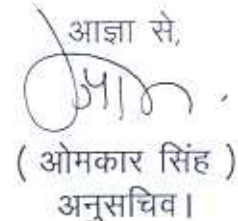 आज्ञा से,
( ओमकार सिंह )
अनुसचिव।